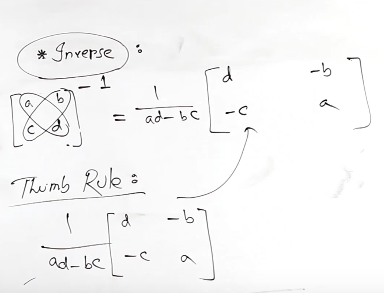 * Inverse :
[a b
c d]⁻¹ = 1/(ad-bc) [d -b
-c a]
Thumb Rule :
1/(ad-bc) [d -b
-c a]